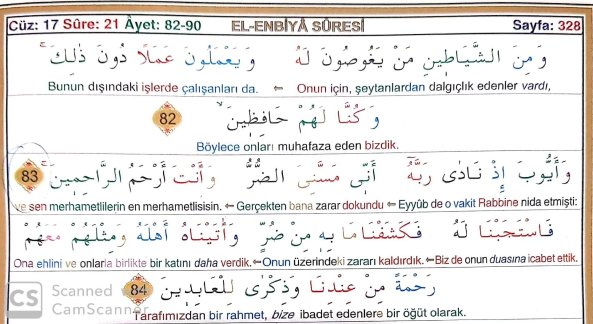 Cüz: 17 Sûre: 21 Âyet: 82-90 EL-ENBİYÂ SÛRESİ Sayfa: 328
وَمِنَ الشَّيَاطِينِ مَنْ يَغُوصُونَ لَهُ وَيَعْمَلُونَ عَمَلًا دُونَ ذٰلِكَۚ
Bunun dışındaki işlerde çalışanları da. ⇐ Onun için, şeytanlardan dalgıçlık edenler vardı,
وَكُنَّا لَهُمْ حَافِظِينَۙ 82
Böylece onları muhafaza eden bizdik.
وَأَيُّوبَ إِذْ نَادٰى رَبَّهُٓ أَنِّي مَسَّنِيَ الضُّرُّ وَأَنْتَ أَرْحَمُ الرَّاحِمِينَۚ 83
ve sen merhametlilerin en merhametlisisin. ⇐ Gerçekten bana zarar dokundu ⇐ Eyyûb de o vakit Rabbine nida etmişti:
فَاسْتَجَبْنَا لَهُ فَكَشَفْنَا مَا بِهِ مِنْ ضُرٍّ وَأٰتَيْنَاهُ أَهْلَهُ وَمِثْلَهُمْ مَعَهُمْ
Ona ehlini ve onlarla birlikte bir katını daha verdik. ⇐ Onun üzerindeki zararı kaldırdık. ⇐ Biz de onun duasına icabet ettik.
رَحْمَةً مِنْ عِنْدِنَا وَذِكْرٰى لِلْعَابِدِينَ 84
Tarafımızdan bir rahmet, bize ibadet edenlere bir öğüt olarak.
CS Scanned
CamScanner